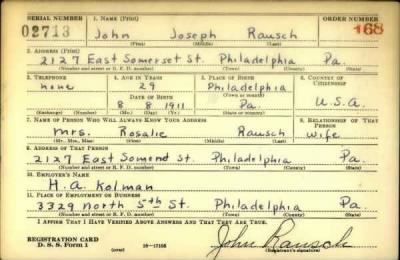 SERIAL NUMBER 1. NAME (Print) ORDER NUMBER
02713 John Joseph Rausch 168
(First) (Middle) (Last)
2. ADDRESS (Print)
2127 East Somerset St. Philadelphia Pa.
(Number and street or R. F. D. number) (Town) (County) (State)
3. TELEPHONE 4. AGE IN YEARS 5. PLACE OF BIRTH 6. COUNTRY OF CITIZENSHIP
none 29 Philadelphia
DATE OF BIRTH (Town or county)
8 8 1911 Pa. U.S.A.
(Exchange) (Number) (Mo.) (Day) (Yr.) (State or country)
7. NAME OF PERSON WHO WILL ALWAYS KNOW YOUR ADDRESS 8. RELATIONSHIP OF THAT PERSON
Mrs. Rosalie Rausch wife
(Mr., Mrs., Miss) (First) (Middle) (Last)
9. ADDRESS OF THAT PERSON
2127 East Somerset St. Philadelphia Pa.
(Number and street or R. F. D. number) (Town) (County) (State)
10. EMPLOYER'S NAME
H. A. Kolman
11. PLACE OF EMPLOYMENT OR BUSINESS
3329 North 5th St. Philadelphia Pa.
(Number and street or R. F. D. number) (Town) (County) (State)
I AFFIRM THAT I HAVE VERIFIED ABOVE ANSWERS AND THAT THEY ARE TRUE.
REGISTRATION CARD
D. S. S. Form 1 (over) 16—17105 John Rausch
(Registrant's signature)